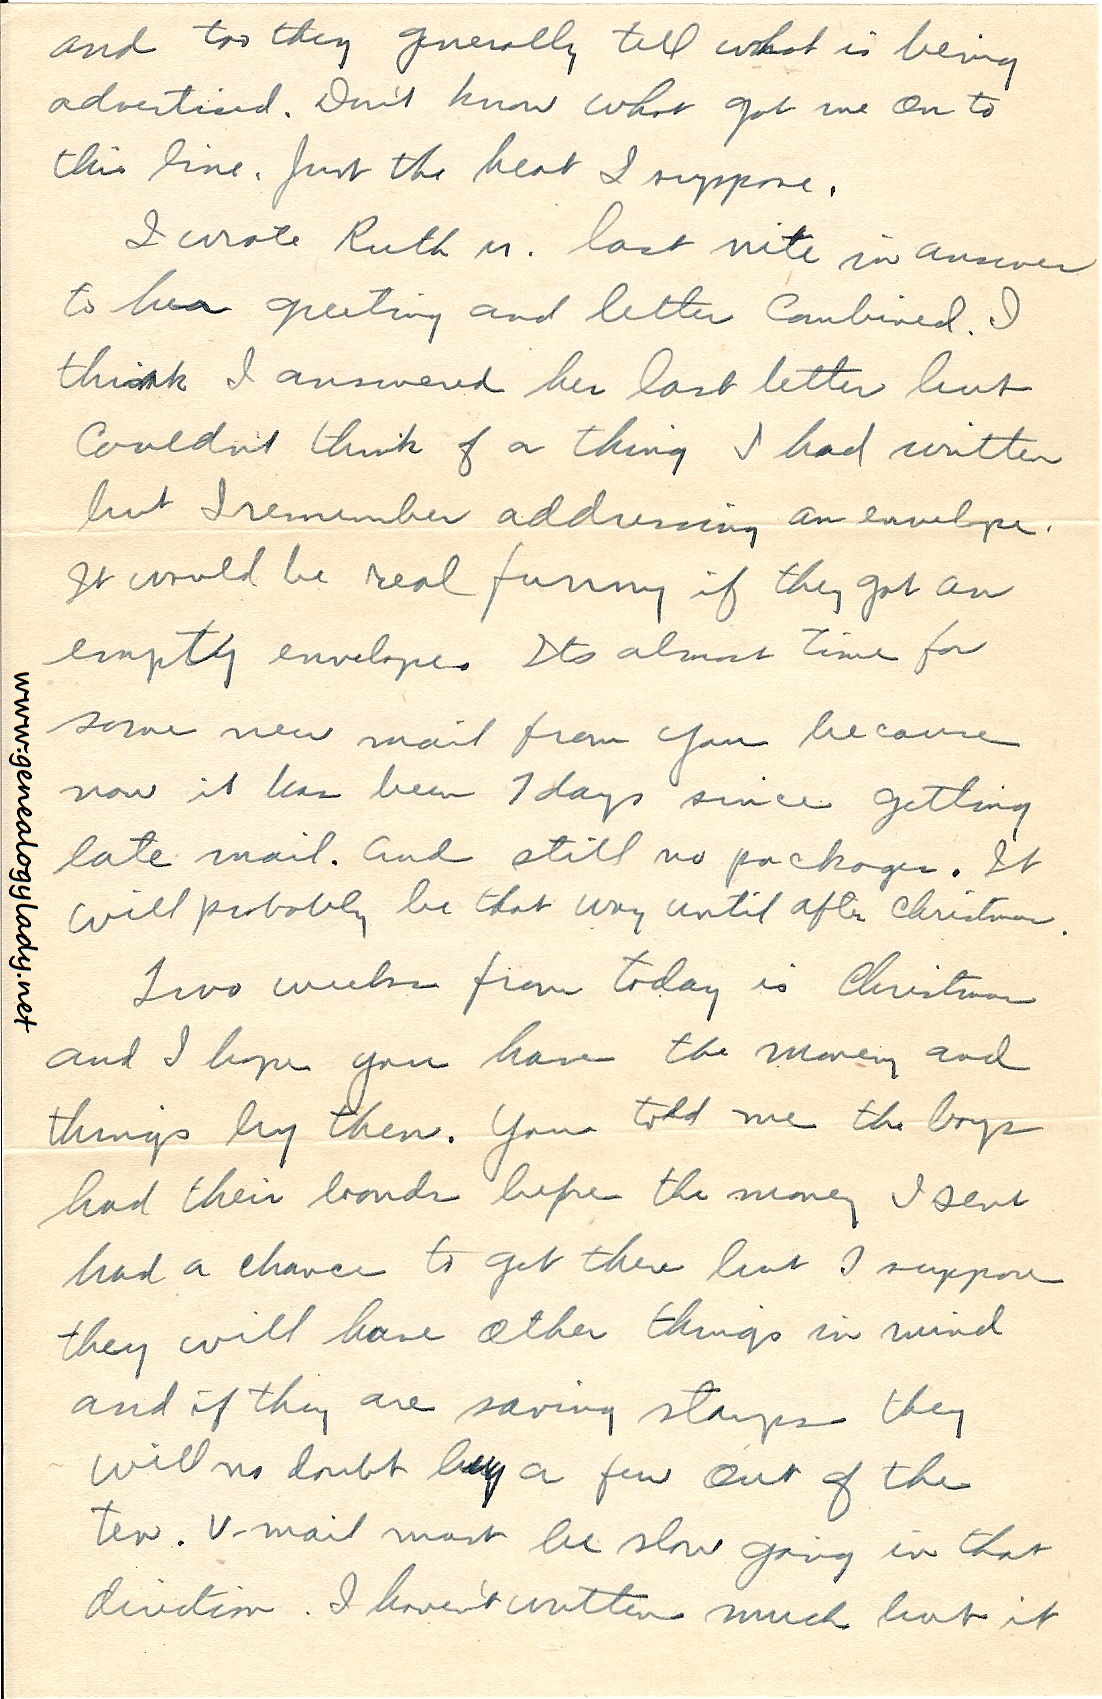 and too they generally tell what is being
advertised. Don't know what got me on to
this line. Just the heat I suppose.
I wrote Ruth N. last nite in answer
to her greeting and letter combined. I
think I answered her last letter but
couldn't think of a thing I had written
but I remember addressing an envelope.
It would be real funny if they got an
empty envelope. Its almost time for
some new mail from you because
now it has been 7 days since getting
late mail. And still no packages. It
will probably be that way until after Christmas.
Two weeks from today is Christmas
and I hope you have the money and
things by then. You told me the boys
had their bonds before the money I sent
had a chance to get there but I suppose
they will have other things in mind
and if they are saving stamps they
will no doubt buy a few out of the
ten. V-mail must be slow going in that
direction. I haven't written much but it
www.genealogylady.net